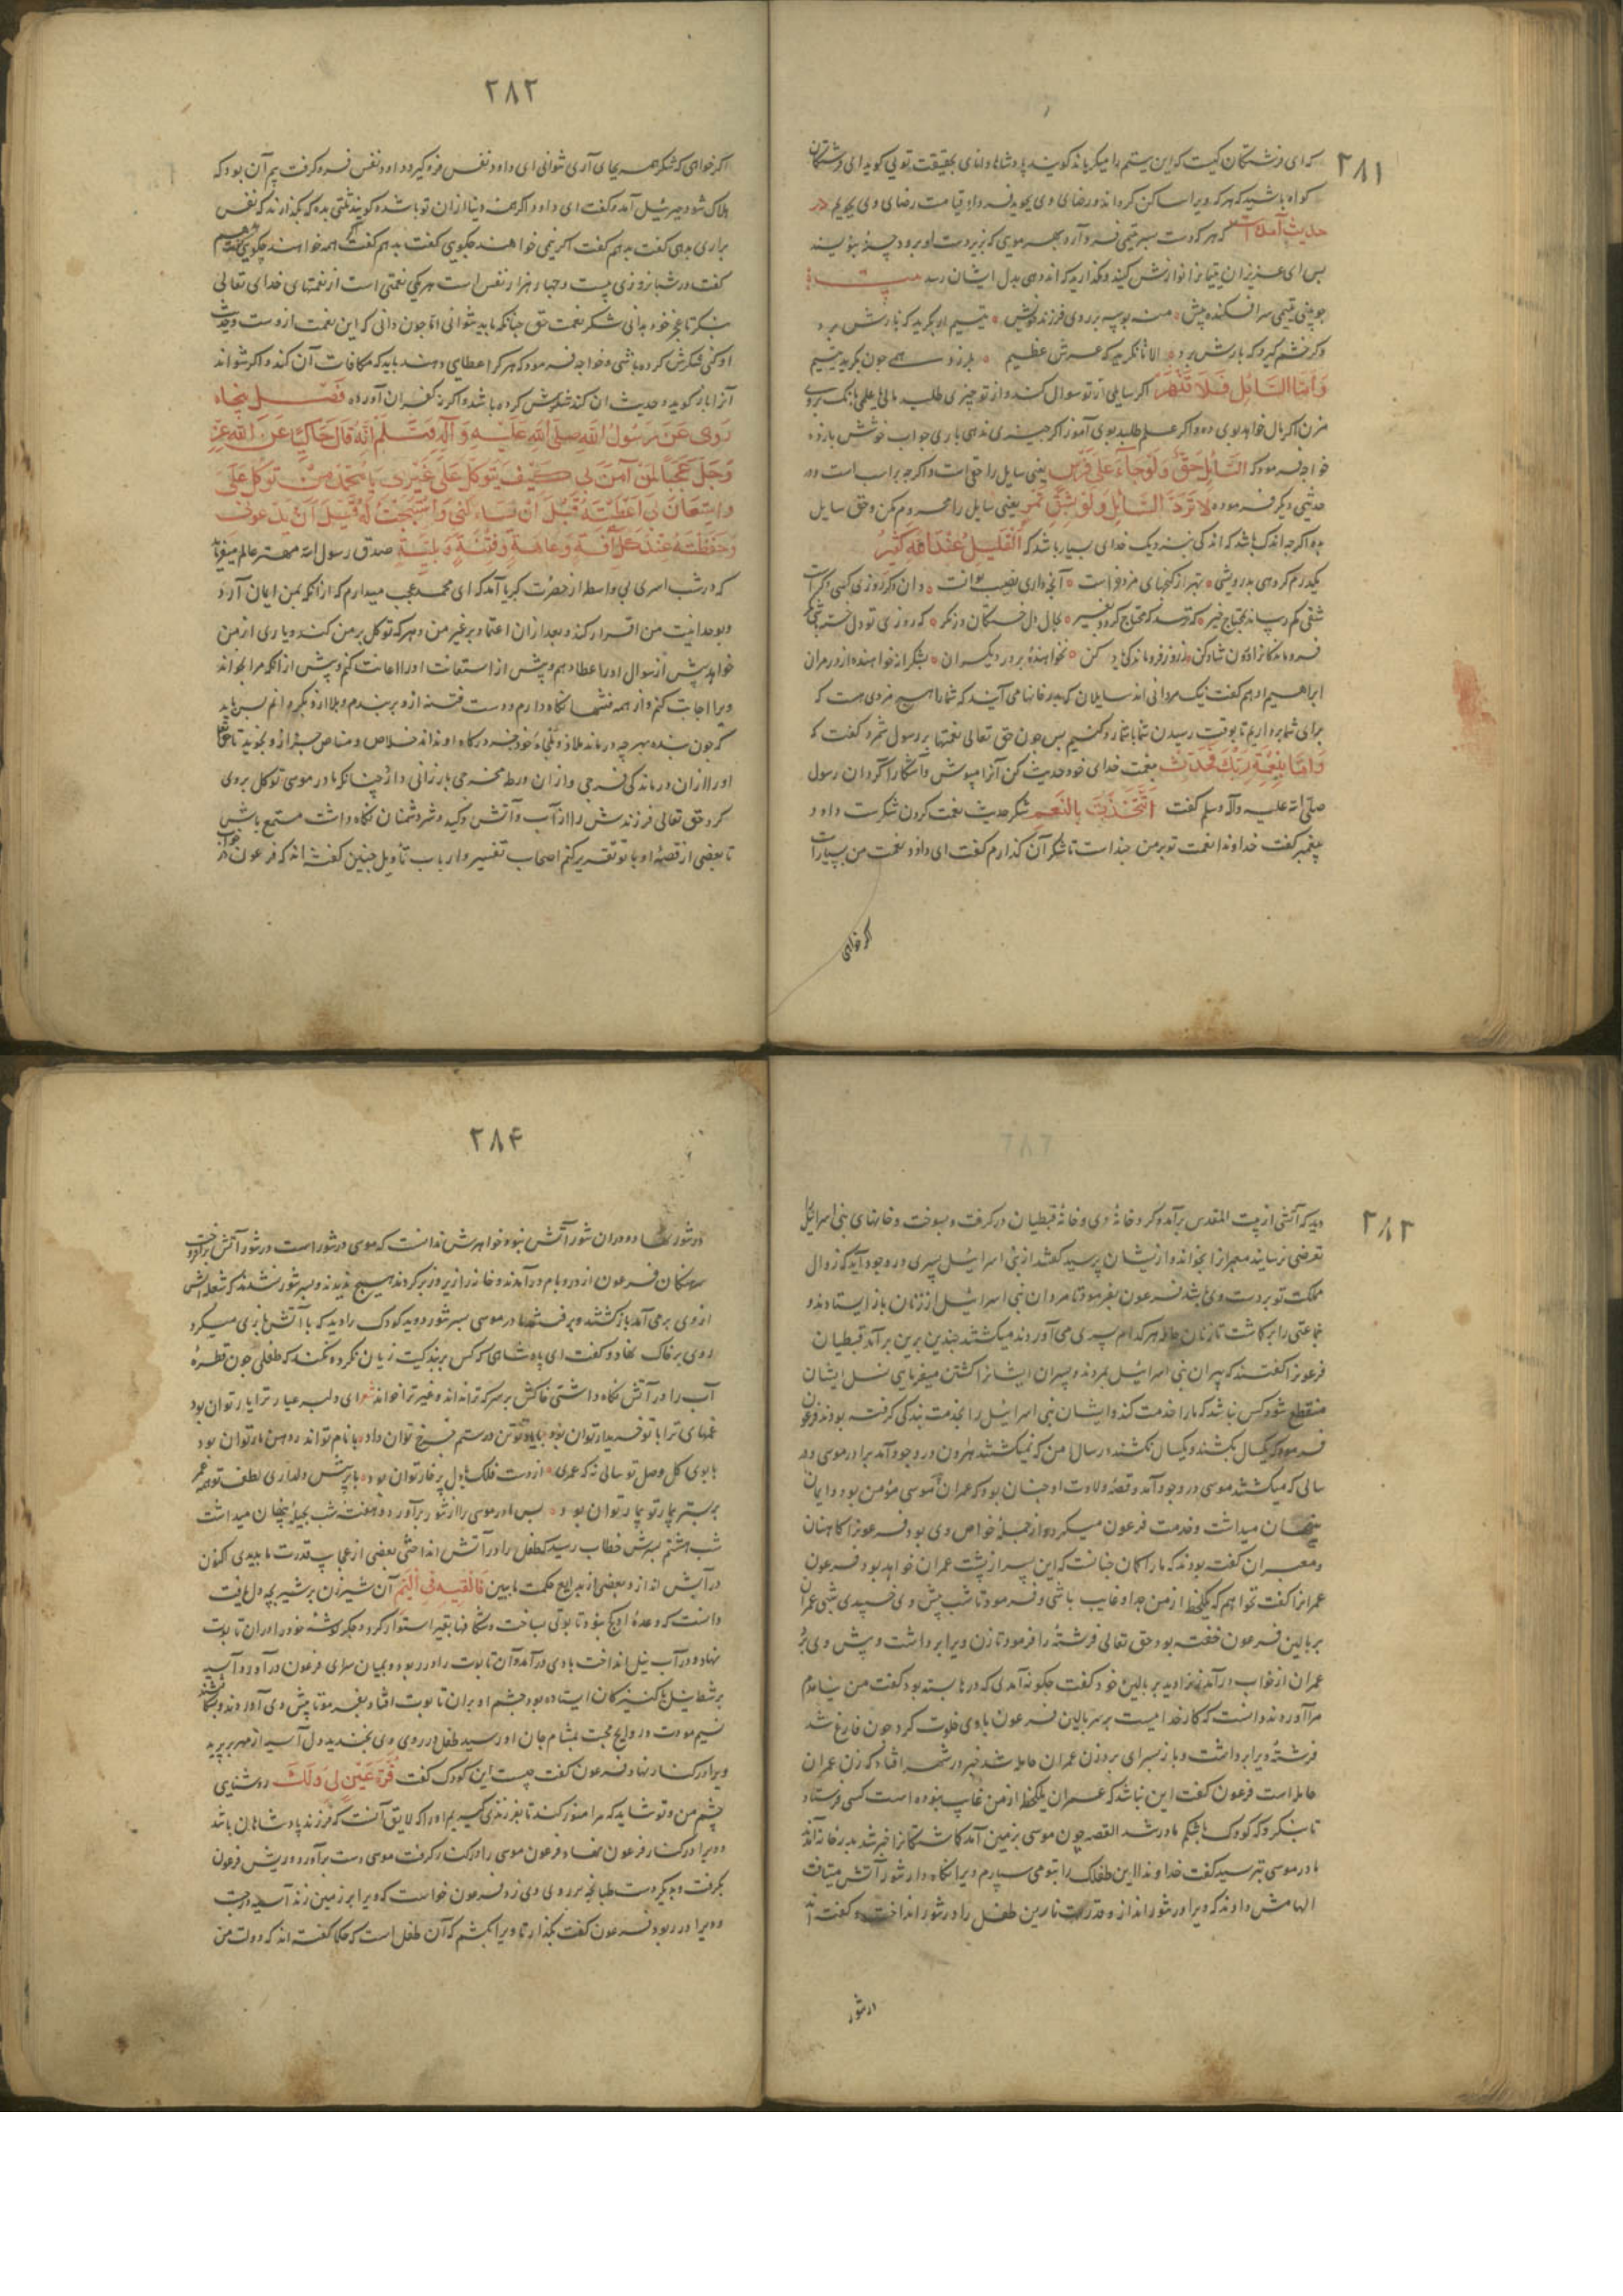 ۲۸۱
که ای فرشتکان کیست که این یتیم را میکریاند کویند پادشاها دانای بحقیقت تویی کوید ای فرشتکان
کواه باشید که هرکه ویرا ساکن کرداند و رضای وی بجوید فردا قیامت رضای وی بجویم در
حدیث آمده است که هرکه دست بسر یتیمی فرود آرد بهر مویی که زیر دست او برود حسنه بنویسند
بس ای عزیزان یتیمانرا نوازش کنید و مکذارید که اندوهی بدل ایشان رسد بیت
چو بینی یتیمی سرافکنده پیش مده بوسه بر روی فرزند خویش یتیم ار بکرید که نازش برد
وکر خشم کیرد که بارش برد الا تا نکرید که عرش عظیم بلرزد همی چون بکرید یتیم
وَاَمَّا السَّائِلَ فَلَا تَنْهَرْ اکر سایلی از تو سوال کند و از تو چیزی طلبد مالی یا علمی بانک بر وی
مزن اکر مال خواهد بوی ده و اکر علم طلبد بوی آموز اکر چیزی ندهی باری جواب خوشش باز ده
خواجه فرمود که السَّائِلُ حَقٌّ وَلَوْجَاءَ عَلَی فَرَسٍ یعنی سایل را حق است و اکرچه بر اسب است و در
حدیثی دیکر فرموده لَا تَرُدَّ السَّائِلَ وَلَوْ بِشِقِّ تَمَرٍ یعنی سایل را محروم مکن و حق سایل
بده اکرچه اندک باشد که اندکی بنزدیک خدای بسیار باشد که اَلْقَلِیلُ عِنْدَ اللهِ کَثِیرٌ
یکدرم کر دهی بدرویشی بهتر از کنجهای مزد فراست آنچه داری نصیب تو آنست وان دکر روزی کسی دکر است
ابراهیم ادهم کفت نیک مردانی اند سایلان که بدر خانها می آیند که شما را هیچ مزدی هست که
برای شما برداریم تا بوقت رسیدن شما بشما رد کنیم بس چون حق تعالی نعمتها بر رسول شمرد کفت که
وَاَمَّا بِنِعْمَةِ رَبِّکَ فَحَدِّثْ بنعمت خدای خود حدیث کن آنرا مپوش و آشکارا کردان رسول
صلی الله علیه وآله وسلم کفت اَلتَّحَدُّثُ بِالنِّعَمِ شکر حدیث نعمت کردن شکرست داود
پیغمبر کفت خداوندا نعمت تو بر من چندانست تا شکر آن کذارم کفت ای داود نعمت من بسیار است
اکر خواهی
۲۸۲
اکر خواهی که شکر همه بجای آری نتوانی ای داود نفس فرو کیر داود نفس فرو کرفت بیم آن بود که
هلاک شود جبرئیل آمد و کفت ای داود اکر همه دنیا ازان تو باشد و کویند ثلثی بده که بکذارند که نفس
براری بدهی کفت بدهم کفت اکر نیمی خواهند چکویی کفت بدهم کفت اکر همه خواهند چکویی کفت بدهم
کفت در شبانروزی بیست و چهار هزار نفس است هر یکی نعمتی است از نعمتهای خدای تعالی
بنکر تا عجز خود بدانی شکر نعمت حق چنانکه باید نتوانی اما چون دانی که این نعمت ازوست و حدیث
او کنی شکرش کرده باشی و خواجه فرمود که هرکرا عطایی دهند باید که مکافات آن کند و اکر نتواند
آنرا باز کوید و حدیث آن کند شکرش کرده باشد و اکرنه کفران آورده فَصْل پنجاه
رَوَی عَنْ رَسُولُ اللهِ صَلَّی اللهِ عَلَیْهِ وَآلِهِ وَسَلَّمْ اَنَّهُ قَالَ حَاکِیًا عَنِ اللهِ عَزَّ
وَجَلَّ عَجَبًا لِمَنْ آمَنَ بِی کَیْفَ یَتَوَکَّلُ عَلَی غَیْرِی یَا مُحَمَّدُ مَنْ تَوَکَّلَ عَلَیَّ
وَاسْتَعَانَ بِی اَعْطَیْتُهُ قَبْلَ اَنْ یَسْاءَلَنِی وَاسْتَجَبْتُ لَهُ قَبْلَ اَنْ یَدْعُونِی
وَحَفِظْتَهُ عِنْدَ کُلِّ آفَةٍ وَعَاهَةٍ وَفِتْنَةٍ وَبَلِیَّةٍ صدق رسول الله مهتر عالم میفرماید
که در شب اسری بی واسطه از حضرت کبریا آمد که ای محمد عجب میدارم که از انکه بمن ایمان آرد
و بوحدانیت من اقرار کند و بعد ازان اعتماد بر غیر من و هرکه توکل بر من کند و یاری از من
خواهد پیش از سوال او را عطا دهم و پیش از استعانت او را اعانت کنم و پیش از انکه مرا بخواند
ویرا اجابت کنم و از همه فتنها نکاه دارم و دست فتنه ازو بربندم و بلا ازو بکردانم بس باید
که چون بنده بهر چه درماند ملاذ و ملجاء خود جز درکاه او نداند خلاص و مناص جز ازو نجوید تا حق تعالی
او را ازان درماندکی فرجی و ازان ورطه مخرجی بارزانی دارد چنانکه مادر موسی توکل بروی
کرد حق تعالی فرزندش را از آب و آتش و کید و شر دشمنان نکاه داشت مستمع باش
تا بعضی از قصهٔ او با تو تقریر کنم اصحاب تفسیر و ارباب تاویل چنین کفته اند که فرعون در خواب
۲۸۳
دید که آتشی از بیت المقدس برآمد و کرد خانهٔ وی و خانهٔ قبطیان در کرفت و بسوخت و خانهای بنی اسرائیل را
تعرضی نرسانید معبرانرا بخواند و از ایشان پرسید کفتند از بنی اسرائیل پسری در وجود آید که زوال
ملکت تو بر دست وی باشد فرعون بفرمود تا مردان بنی اسرائیل از زنان باز ایستادند و
جماعتی را بر کماشت تا زنان حامله هر کدام پسری می آوردند میکشتند چندین برین برآمد قبطیان
فرعونرا کفتند که پیران بنی اسرائیل بمردند و پسران ایشانرا کشتن میفرمایی نسل ایشان
منقطع شود کس نباشد که ما را خدمت کند و ایشان بنی اسرائیل را بخدمت بندکی کرفته بودند فرعون
فرمود که یکسال بکشند و یکسال نکشند در سال امن که نمیکشتند هرون در وجود آمد برادر موسی و در
سالی که میکشتند موسی در وجود آمد و قصهٔ ولادت او چنان بود که عمران موسی مؤمن بود و ایمان
پنهان میداشت و خدمت فرعون میکرد و از جملهٔ خواص وی بود فرعونرا کاهنان
و معبران کفته بودند که ما را کمان چنانست که این پسر از پشت عمران خواهد بود فرعون
عمرانرا کفت نخواهم که یکلحظه از من جدا و غایب باشی و فرمود تا شب پیش وی خسپیدی شبی عمران
بر بالین فرعون خفته بود حق تعالی فرشتهٔ را فرمود تا زن ویرا برداشت و پیش وی برد
عمران از خواب درآمد زنرا دید بر بالین خود کفت چکونه آمدی که درها بسته بود کفت من نیامدم
مرا آوردند دانست که کار خداییست بر سر بالین فرعون با وی خلوت کرد چون فارغ شد
فرشته ویرا برداشت و باز بسرای برد زن عمران حامله شد خبر در شهر افتاد که زن عمران
حامله است فرعون کفت این نباشد که عمران یکلحظه از من غایب نبوده است کسی فرستاد
تا بنکرد که کودک باشکم مادر شد القصه چون موسی بزمین آمد کماشتکانرا خبر شد بدر خانه آمدند
مادر موسی بترسید کفت خداوندا این طفلک را بتو می سپارم ویرا نکاه دار تنور آتش میتافت
الهامش دادند که ویرا در تنور انداز و قدرت ما ببین طفل را در تنور انداخت و کفته اند
در تنور
۲۸۴
در تنور نهاد و دران تنور آتش نبود خواهرش ندانست که موسی در تنور است در تنور آتش برافروخت
سرهنکان فرعون از در و بام درآمدند و خانه را زیر و زبر کردند هیچ ندیدند و بسر تنور نشدند که شعله آتش
از وی برمی آمد باز کشتند و برفتند مادر موسی بسر تنور دوید کودک را دید که با آتش بازی میکرد
روی بر خاک نهاد و کفت ای پادشاهی که کس بر بندکیت زیان نکرد و نکند که طفلی چون قطرهٔ
آب را در آتش نکاه داشتی خاکش بر سر که ترا نداند و غیر ترا خواند شعر ای دلبر عیار ترا یار توان بود
غمهای ترا با تو خریدار توان بود با یاد تو تن در ستم چرخ توان داد با نام تو اندر دهن مار توان بود
با بوی کل وصل تو سالی نه که عمری از دست فلک با دل پر خار توان بود با پرسش و دلداری لطف تو همه عمر
بر بستر بیمار تو بیمار توان بود بس مادر موسی را از تنور برآورد و هفت شب بحیله پنهان میداشت
شب هشتم بسرش خطاب رسید که طفل را در آتش انداختی بعضی از عجایب قدرت ما بدیدی اکنون
در آبش انداز و بعضی از بدایع حکمت ما ببین فَاَلْقِیهِ فِی الْیَمِّ آن شیرزن بر شیر بچه دل یافت
دانست که وعدهٔ او کج نبود تابوتی بساخت و شکافها بقیر استوار کرد و جکر کوشهٔ خود را دران تابوت
نهاد و در آب نیل انداخت بادی درآمد و آن تابوت را در ربود و بمیان سرای فرعون درآورد و آسیه
بر شط نیل با کنیزکان ایستاده بود چشم او بران تابوت افتاد بفرمود تا پیش وی آوردند و بشکافتند
نسیم مودت و روایح محبت بمشام جان او رسید طفل در روی وی بخندید دل آسیه از مهر بر پرید
ویرا در کنار نهاد فرعون کفت چیست این کودک کفت قُرَّةُ عَیْنٍ لِی وَلَکَ روشنایی
چشم من و تو شاید که مرا منور کند تا بفرزندی کیریم او را که لایق آنست که فرزند پادشاهان باشد
و ویرا در کنار فرعون نهاد فرعون موسی را در کنار کرفت موسی دست برآورد و ریش فرعون
بکرفت و بدیکر دست طبانچه بر روی وی زد فرعون خواست که ویرا بر زمین زند آسیه درجست
و ویرا در ربود فرعون کفت بکذار تا ویرا بکشم که آن طفل است که حکما کفته اند که دولت من